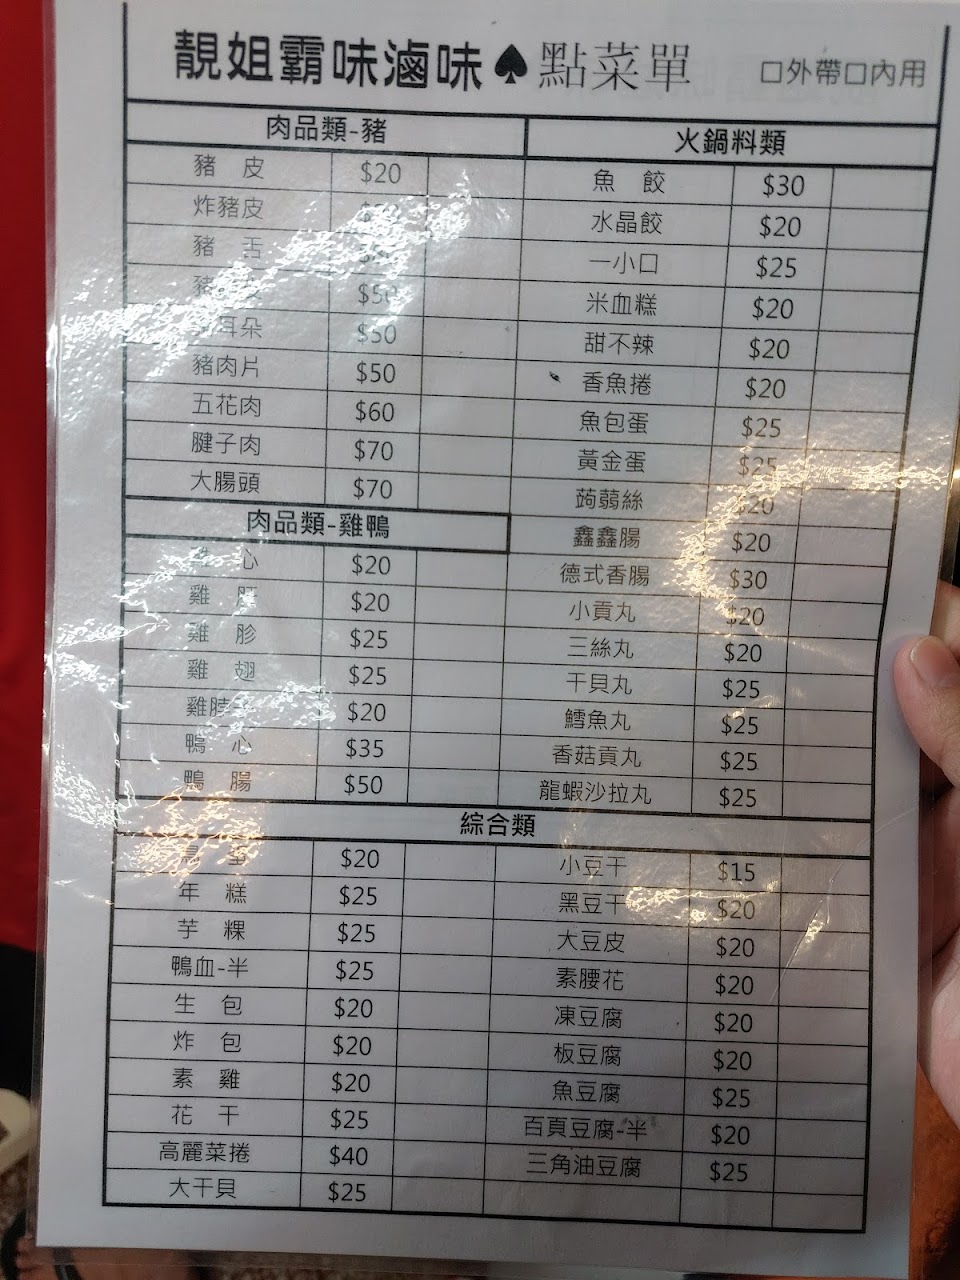 靚姐霸味滷味♠點菜單 口外帶口內用
肉品類-豬
豬 皮 $20
炸豬皮
豬 舌
$50
耳朵 $50
豬肉片 $50
五花肉 $60
腱子肉 $70
大腸頭 $70
肉品類-雞鴨
心 $20
雞 $20
雞 胗 $25
雞 翅 $25
雞脖子 $20
鴨 心 $35
鴨 腸 $50
火鍋料類
魚 餃 $30
水晶餃 $20
一小口 $25
米血糕 $20
甜不辣 $20
香魚捲 $20
魚包蛋 $25
黃金蛋 $25
蒟蒻絲 $20
鑫鑫腸 $20
德式香腸 $30
小貢丸 $20
三絲丸 $20
干貝丸 $25
鱈魚丸 $25
香菇貢丸 $25
龍蝦沙拉丸 $25
綜合類
$20
年 糕 $25
芋 粿 $25
鴨血-半 $25
生 包 $20
炸 包 $20
素 雞 $20
花 干 $25
高麗菜捲 $40
大干貝 $25
小豆干 $15
黑豆干 $20
大豆皮 $20
素腰花 $20
凍豆腐 $20
板豆腐 $20
魚豆腐 $25
百頁豆腐-半 $20
三角油豆腐 $25